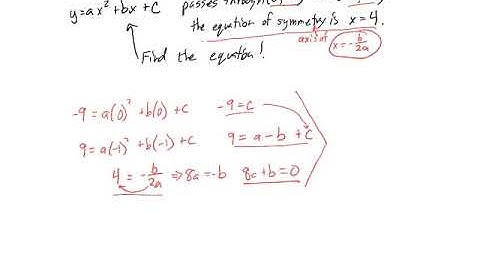 y=ax²+bx+c passes through
the equation of symmetry is x=4.
axis of x=-b/2a
Find the equation!
-9=a(0)²+b(0)+c -9=c
9=a(-1)²+b(-1)+c 9=a-b+c
4=-b/2a ⇒8a=-b 8a+b=0